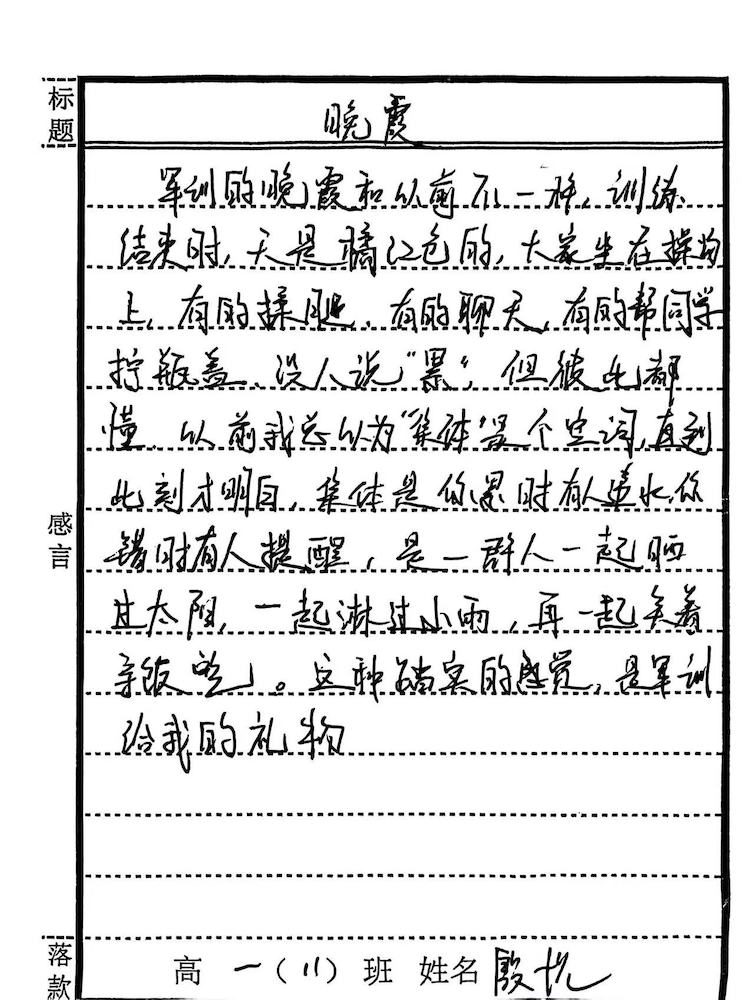 标题
晚霞
军训的晚霞和以前不一样,训练
结束时,天是橘红色的,大家坐在操场
上,有的揉腿,有的聊天,有的帮同学
拧瓶盖,没人说"累",但彼此都
懂,以前我总以为"集体"是个空词,直到
此刻才明白,集体是你累时有人递水,你
错时有人提醒,是一群人一起晒
过太阳,一起淋过小雨,再一起笑着
。这种踏实的感觉,是军训
给我的礼物
感言
落款
高一(11)班 姓名 殷悦